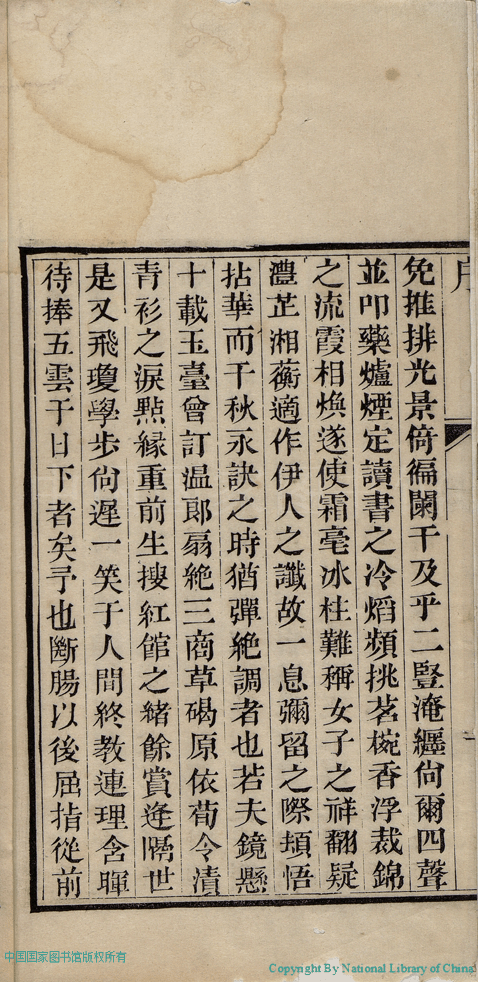 序
免推排光景倚徧闌干及乎二豎淹纏尙爾四聲
並叩藥爐煙定讀書之冷熖頻挑茗椀香浮裁錦
之流霞相煥遂使霜毫冰柱難稱女子之祥翻疑
澧芷湘蘅適作伊人之讖故一息彌留之際頓悟
拈華而千秋永訣之時猶彈絶調者也若夫鏡懸
十載玉臺曾訂温郎扇絶三商草碣原依荀令漬
青衫之淚㸃緣重前生搜紅館之緒餘賞逢隔世
是又飛瓊學步尙遲一笑于人間終教連理含暉
待捧五雲于日下者矣予也斷腸以後屈指從前
中国国家图书馆版权所有
Copyright By National Library of China